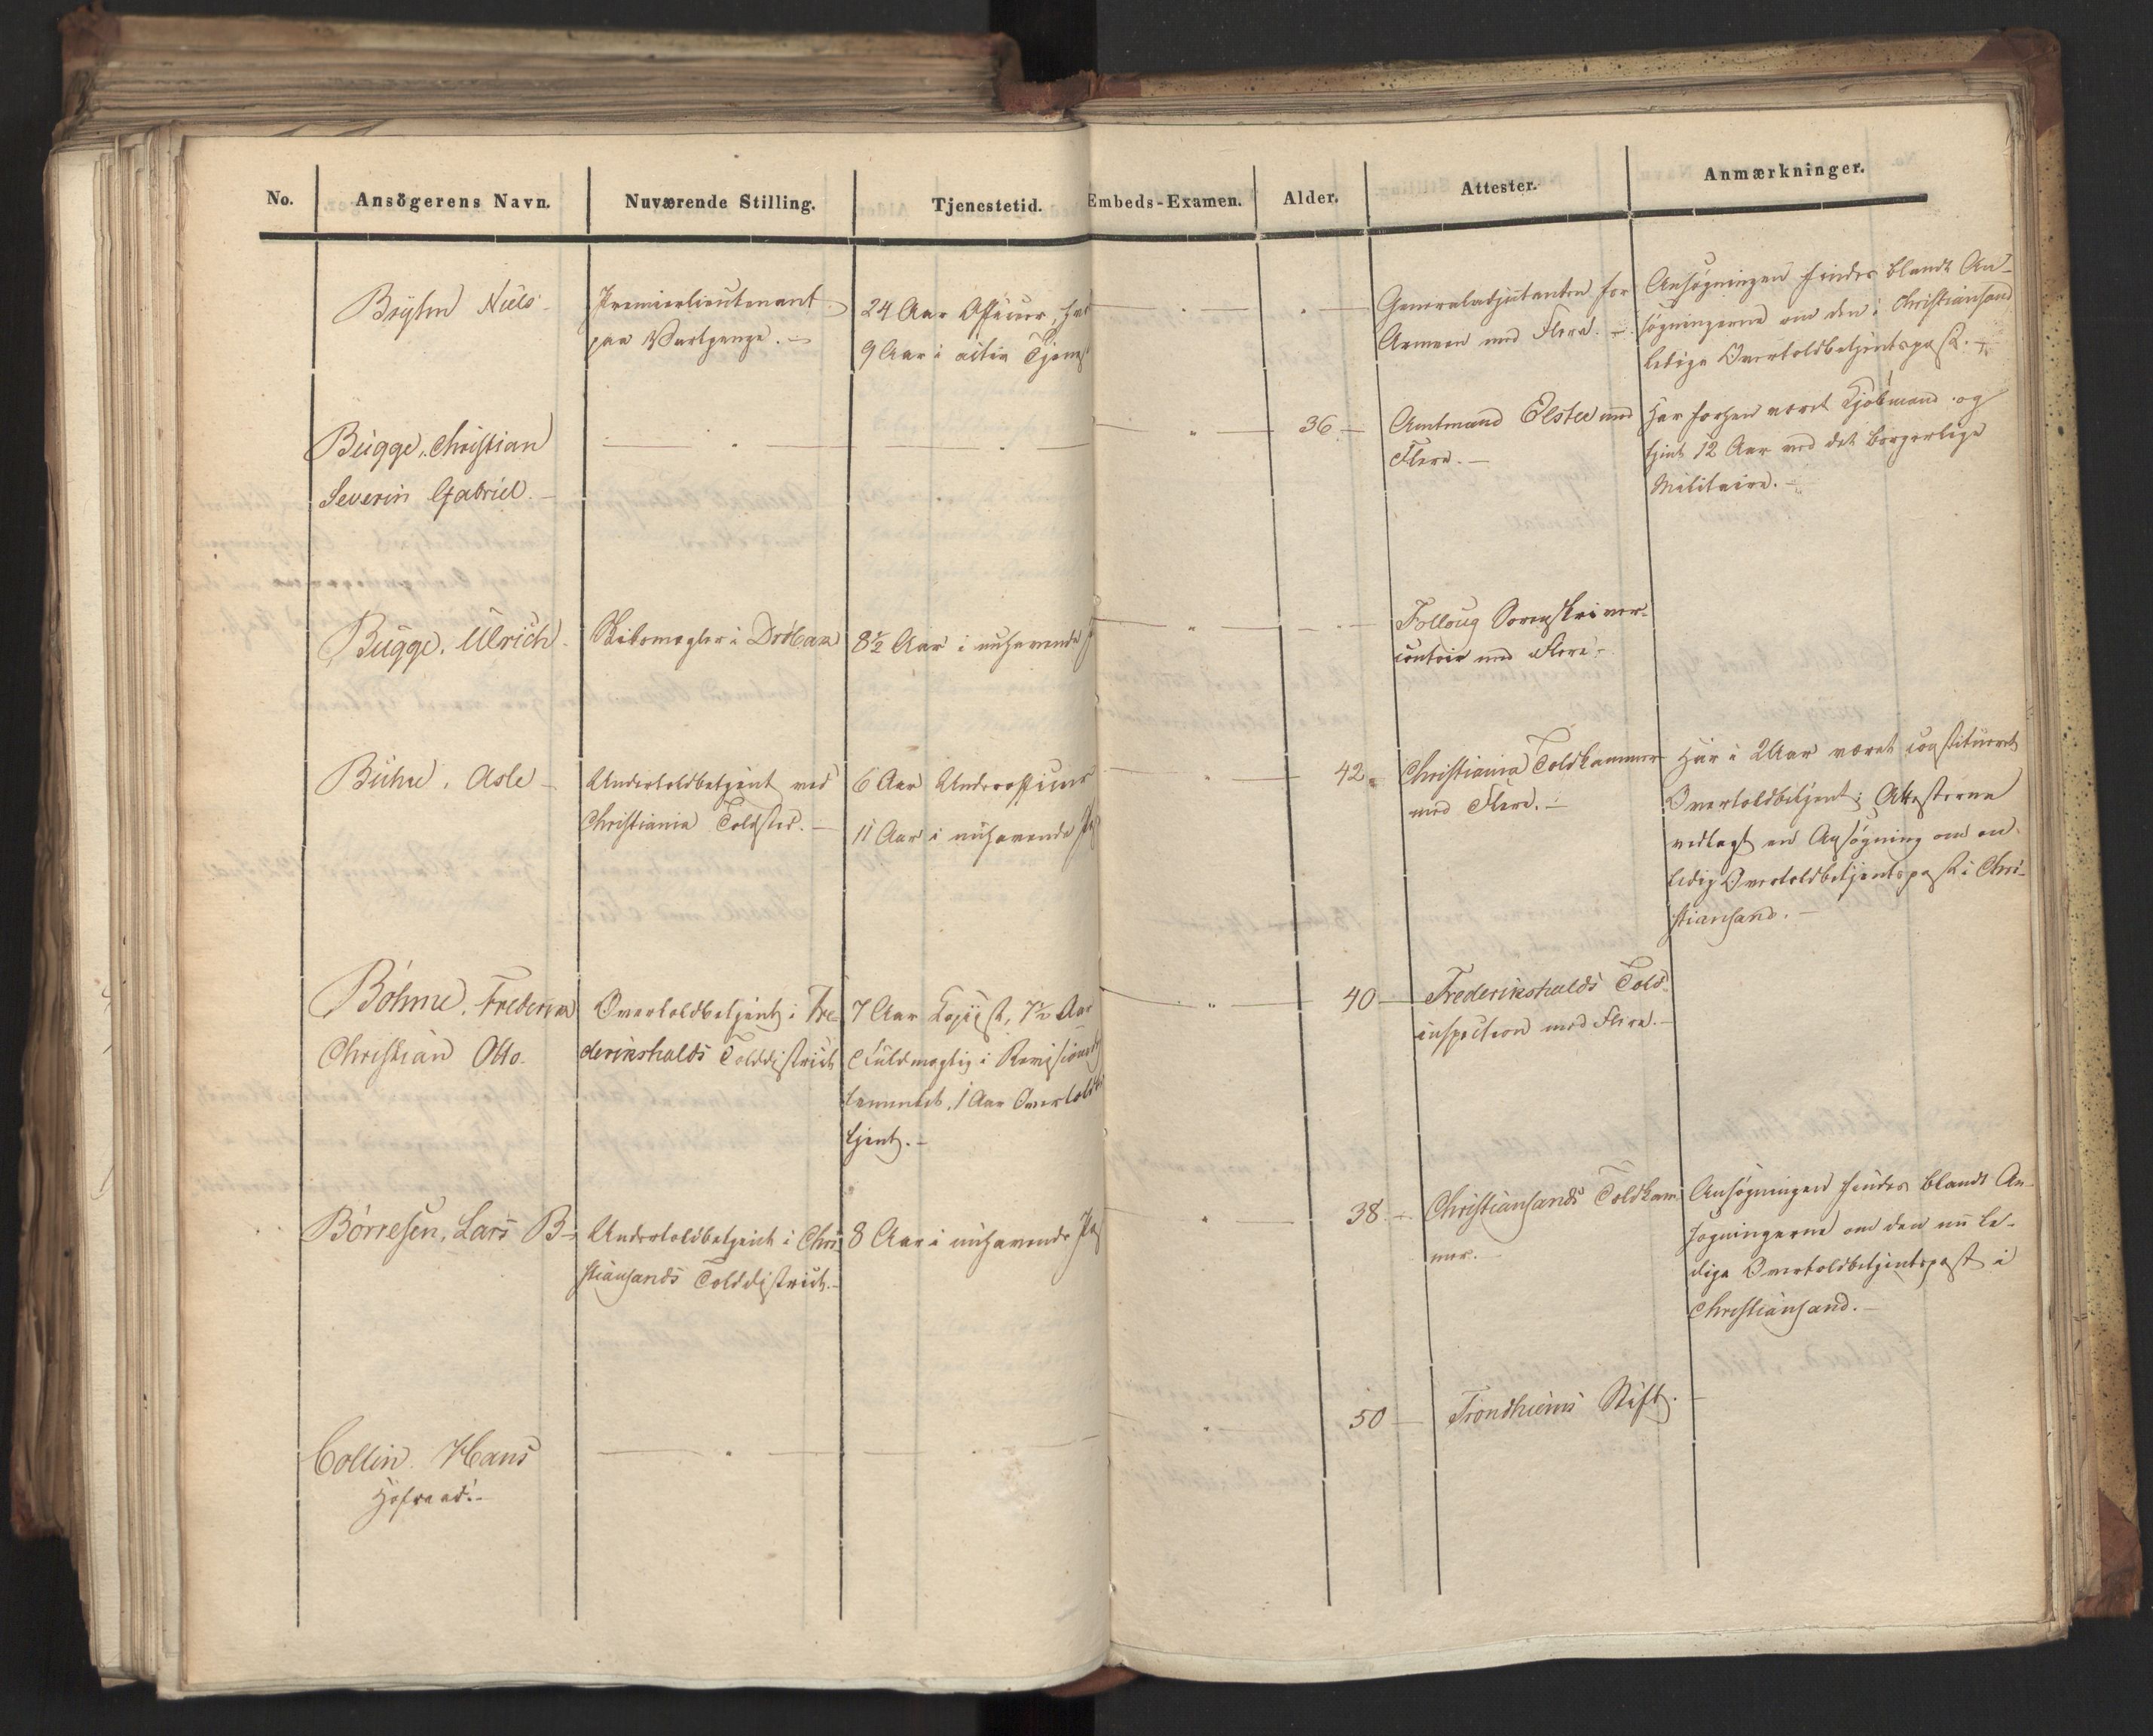 No. Ansögerens Navn. Nuværende Stilling. Tjenestetid. Embeds-Examen. Alder. Attester. Anmærkninger.
Brÿhn Niels
Premierlieutenant
paa Vartpenge.
24 Aar Officier, har
9 Aar i activ Tjenes
Generaladjutanten for
Armeen med Flere.
Ansøgningen findes blandt An-
søgningerne om den i Christiansand
ledige Overtoldbetjentspost.
Bugge, Christian
Severin Gabriel.
36
Amtmand Elster med
Flere.
Har forhen været Kjöbmand og
tjent 12 Aar ved det borgerlige
Militaire.
Bugge, Ulrich
Skibsmægler i Dröbak
8½ Aar i nuhavende
Folloug Sorenskriver-
contoir med Flere.
Buhre, Asle
Undertoldbetjent ved
Christiania Toldsted.
6 Aar Underofficier
11 Aar i nuhavende Po
42
Christiania Toldkammer
med Flere.
Har i 2 Aar været constitueret
Overtoldbetjent; Attesterne
vedlagt en Ansøgning om en
ledig Overtoldbetjentspost i Chri-
stiansand.
Böhme, Frederik
Christian Otto.
Overtoldbetjent i Fre-
derikshalds Tolddistrict
7 Aar Copiist, 7½ Aar
Fuldmægtig i Revisionsde
temenet, 1 Aar Overtoldbe
tjent.
40
Frederikshalds Told-
inspection med Flere.
Börresen, Lars B-
Undertoldbetjent i Chri-
stiansands Tolddistrict.
8 Aar i nuhavende Po
38
Christiansands Toldkam-
mer.
Ansøgningen findes blandt An-
søgningerne om den nu le-
dige Overtoldbetjentspost i
Christiansand.
Collin. Hans
Hofraad.
50
Trondhiems Stift.